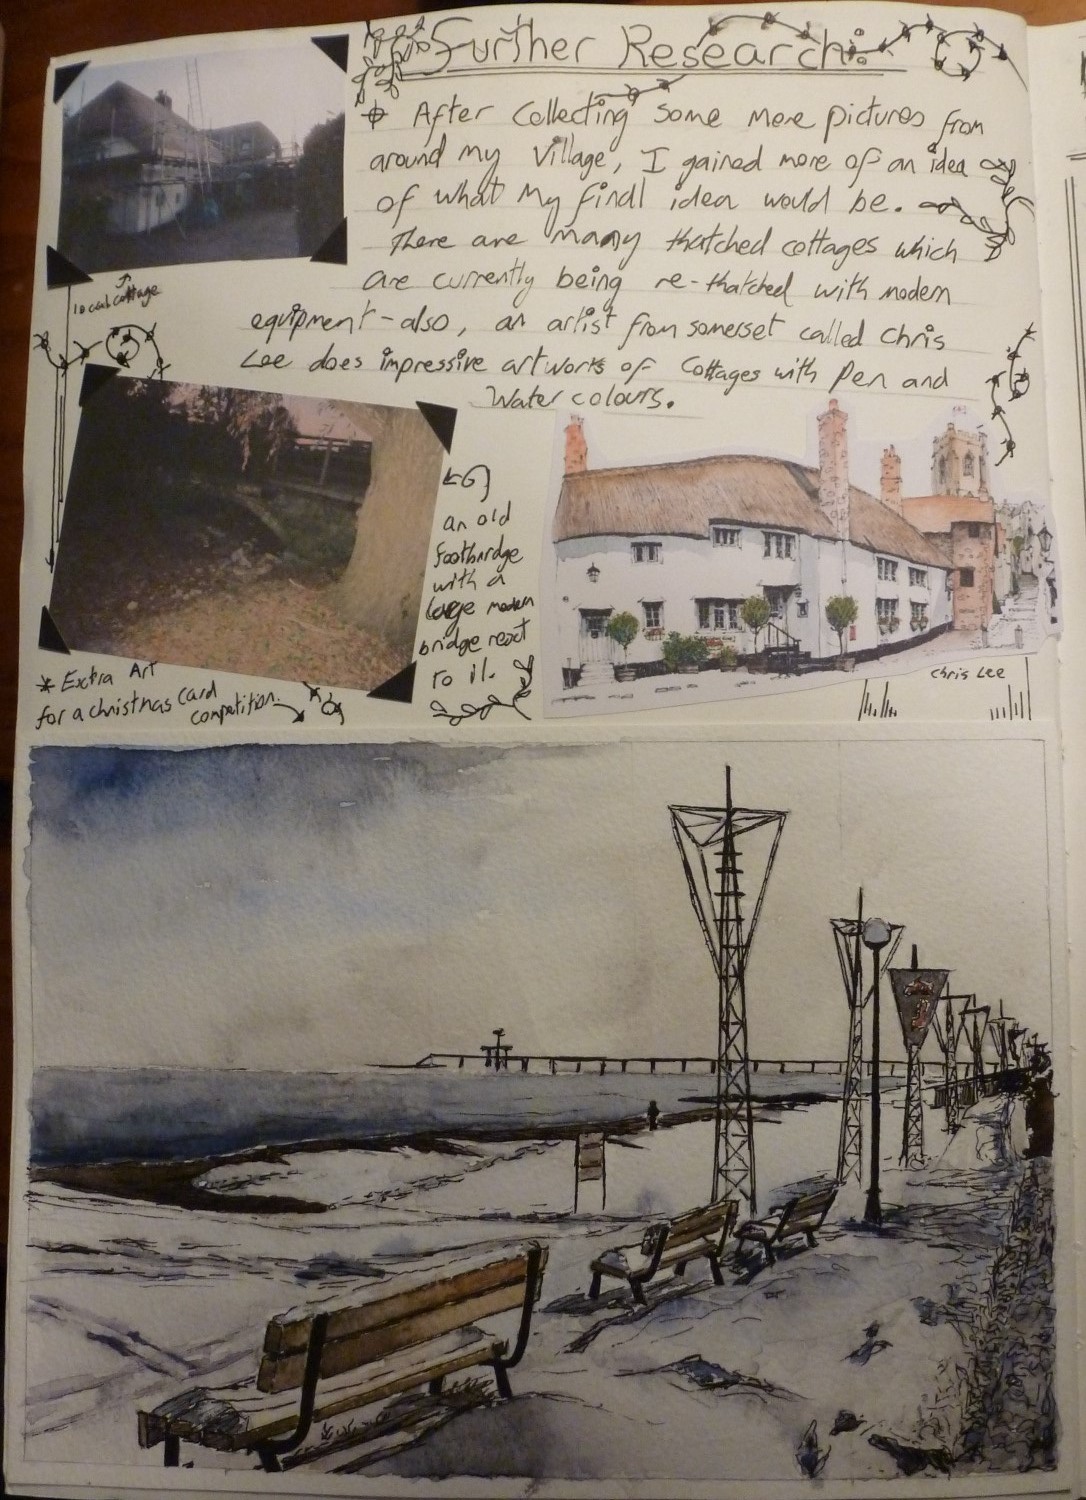 Further Research:
After Collecting some more pictures from
around my Village, I gained more of an idea
of what my final idea would be.
There are many thatched cottages which
are currently being re-thatched with modern
equipment - also, an artist from somerset called Chris
Lee does impressive artworks of Cottages with Pen and
Water colours.
local cottage
an old
footbridge
with a
large modern
bridge next
to it.
* Extra Art
for a christmas Card
competition.
Chris Lee